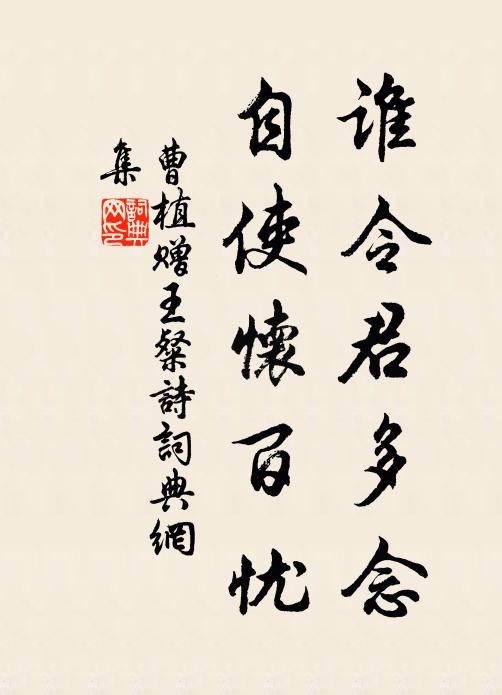 谁令君多念
自使懷百忧
曹植赠王粲詩詞典網
集
詞典
网印